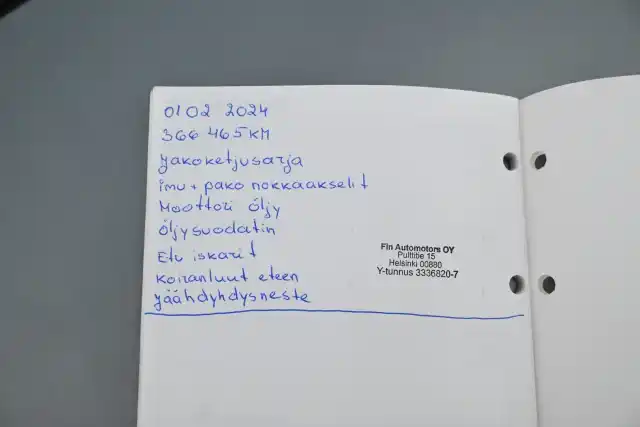 01 02 2024
366 465 KM
Jakoketjusarja
imu + pako nokkaakselit
Moottori öljy
öljysuodatin
Etu iskarit
Koiranluut eteen
jäähdyhdysneste
Fin Automotors OY
Pulttitie 15
Helsinki 00880
Y-tunnus 3336820-7